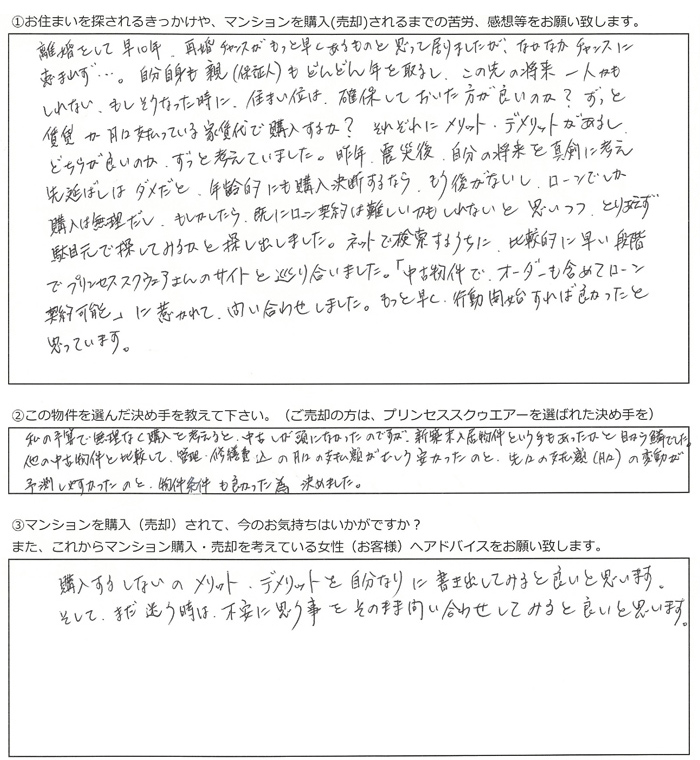 ①お住まいを探されるきっかけや、マンションを購入(売却)されるまでの苦労、感想等をお願い致します。
離婚をして早10年、再婚チャンスがもっと早くあるものと思って居りましたが、なかなかチャンスに
恵まれず…。自分自身も親(保証人)もどんどん年を取るし、この先の将来一人かも
しれない、もしそうなった時に、住まい位は、確保しておいた方が良いのか？ずっと
賃貸か月々支払っている家賃代で購入するか？それぞれにメリット・デメリットがあるし、
どちらが良いのか、ずっと考えていました。昨年、震災後、自分の将来を真剣に考え
先延ばしはダメだと、年齢的にも購入決断するなら、もう後がないし、ローンでしか
購入は無理だし、もしかしたら、既にローン契約は難しいかもしれないと思いつつ、とりあえず
駄目元で探してみるかと探し出しました。ネットで検索するうちに、比較的に早い段階
でプリンセススクゥエアさんのサイトと巡り合いました。「中古物件で、オーダーも含めてローン
契約可能」に惹かれて、問い合わせしました。もっと早く、行動開始すれば良かったと
思っています。
②この物件を選んだ決め手を教えて下さい。（ご売却の方は、プリンセススクゥエアーを選ばれた決め手を）
私の予算で無理なく購入と考えると、中古しか頭になかったのですが、新築未入居物件という手もあったかと目から鱗でした。
他の中古物件と比較して、管理・修繕費込の月々の支払額がだいぶ安かったのと、先々の支払額(月々)の変動が
予測しやすかったのと、物件条件も良かった為決めました。
③マンションを購入（売却）されて、今のお気持ちはいかがですか？
また、これからマンション購入・売却を考えている女性（お客様）へアドバイスをお願い致します。
購入するしないのメリット・デメリットを自分なりに書き出してみると良いと思います。
そして、まだ迷う時は、不安に思う事をそのまま問い合わせしてみると良いと思います。